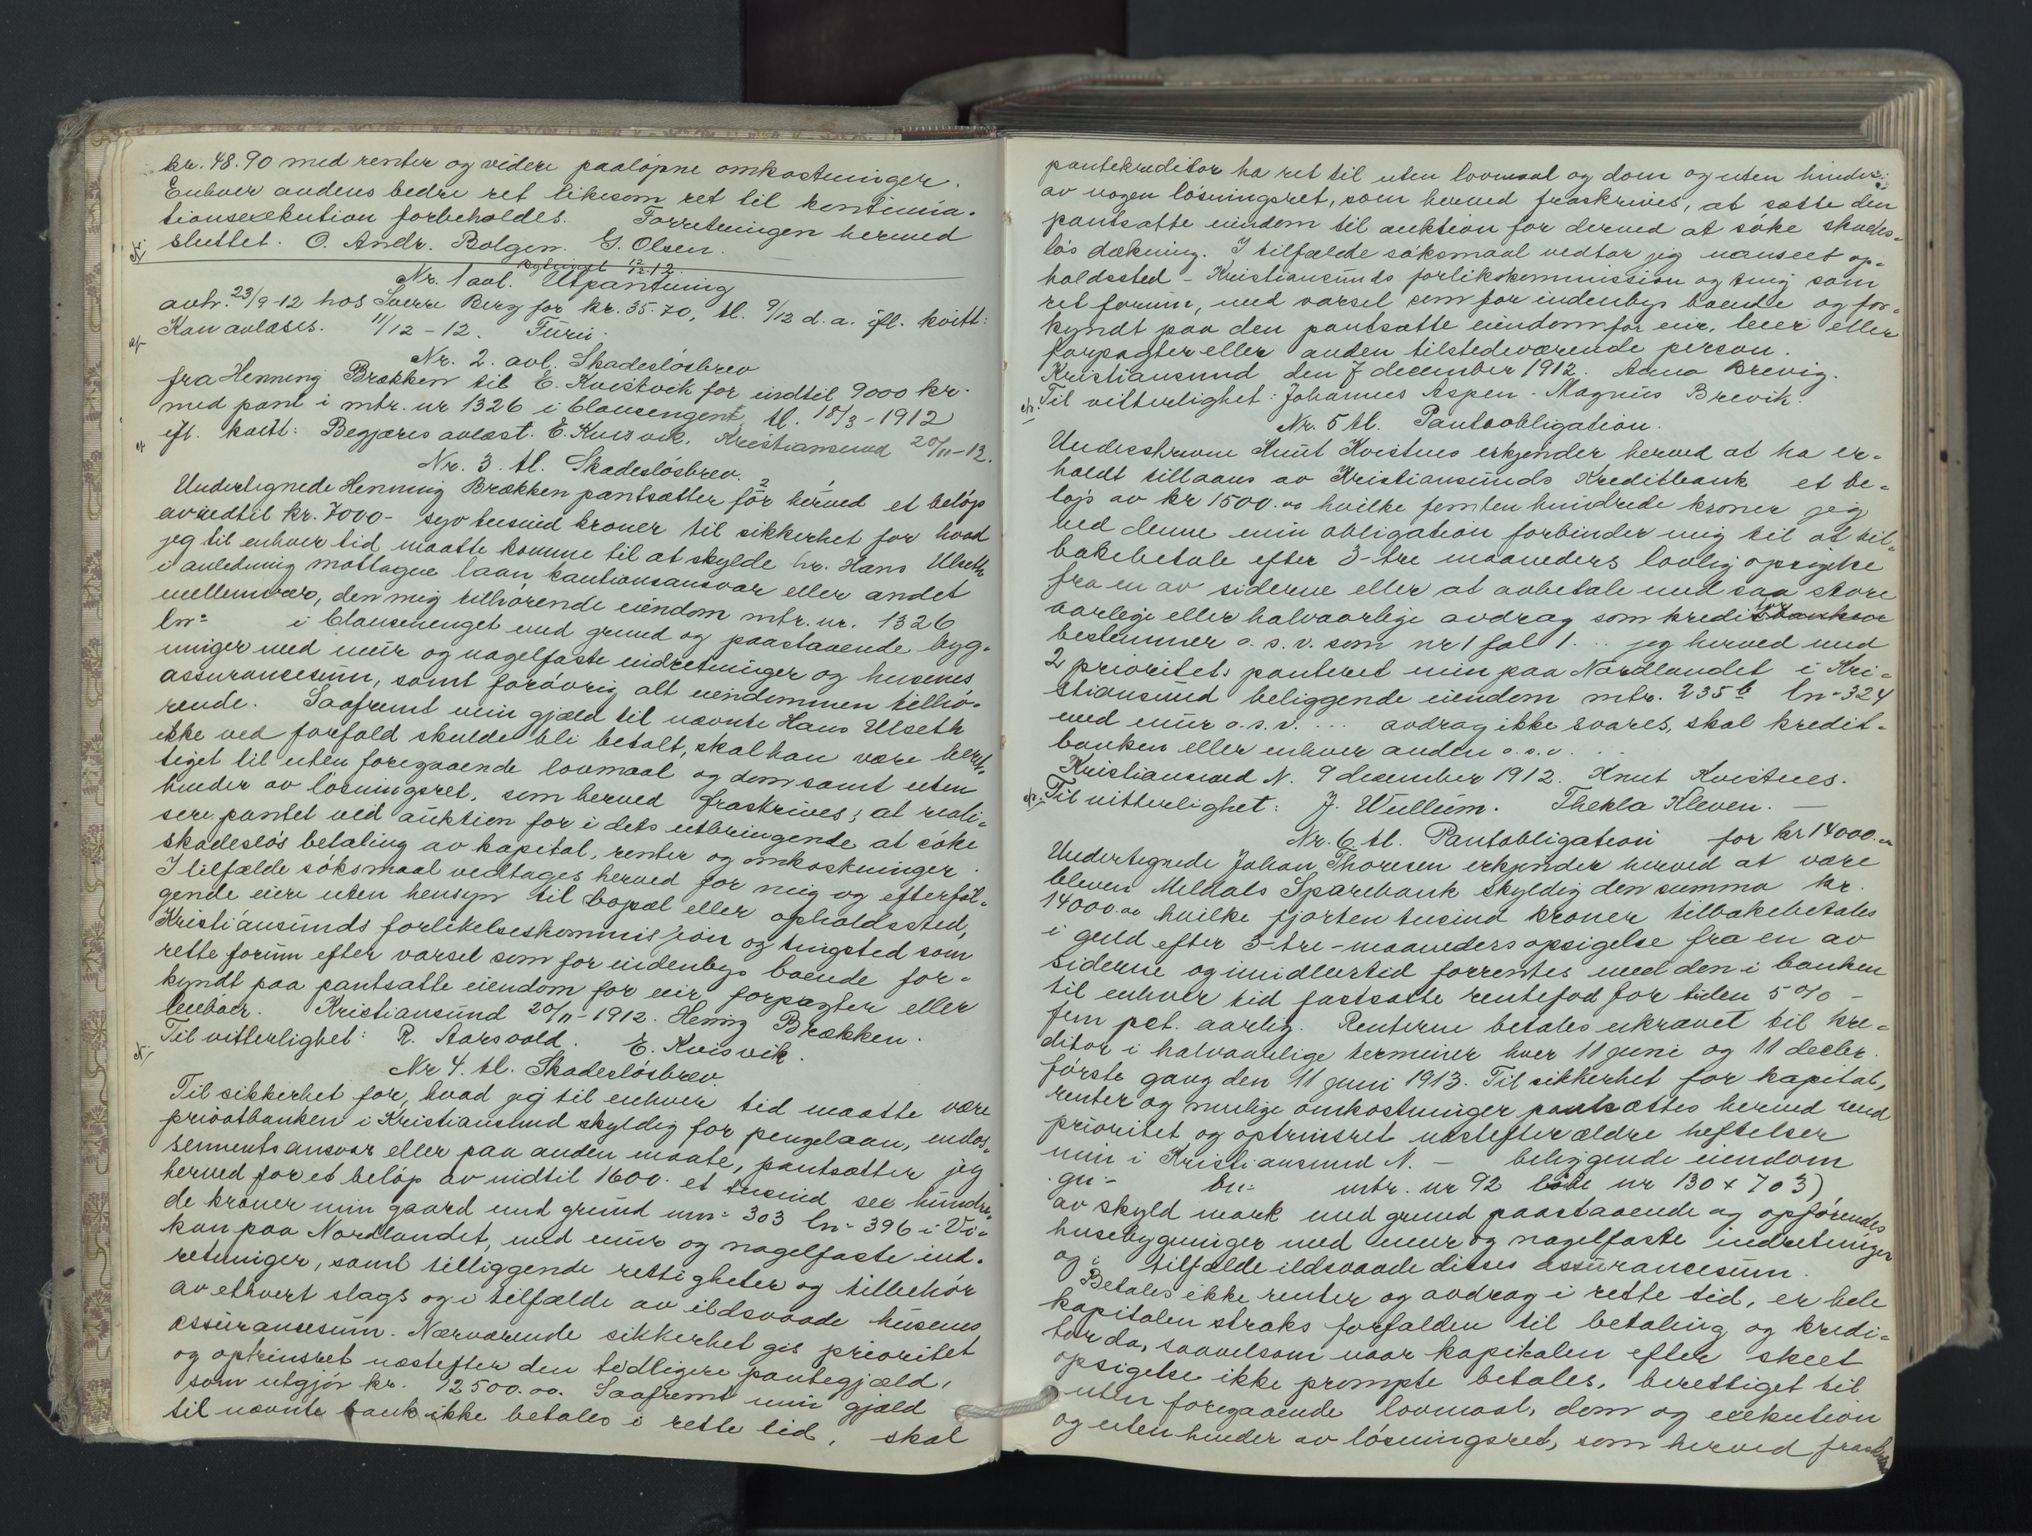 kr. 48.90 med renter og videre paaløpne omkostninger.
Enhver andens bedre ret likesom ret til kontinua-
tionsexekution forbeholdes. Forretningen hermed
sluttet. O. Andr. Bolgen. G. Olsen.
Nr. 1 avl. Utpantning
avh. 23/9-12 hos Sverre Berg for kr. 35.70, tl. 9/12 d.a. ifl. kvitt:
Kan avlæses. 11/12-12. Furu.
Nr. 2. avl. Skadesløsbrev
fra Henning Brækken til E. Kvistvik for indtil 9000 kr.
med pant i mtr. nr 1326 i Clausenget, tl. 18/3-1912
eft. kvitt: Begjæres avlæst. E. Kvisvik. Kristiansund 20/11-12.
Nr. 3. tl. Skadesløsbrev.
Undertegnede Henning Brækken pantsætter for herved et beløp
av indtil kr. 7000- syv tusind kroner til sikkerhet for hvad
jeg til enhver tid maatte komme til at skylde hr. Hans Ulseth
i anledning mottagne laan kautionsansvar eller andet
mellemvær, den mig tilhørende eiendom mtr. nr. 1326
ln- i Clausenenget med grund og paastaaende byg-
ninger med mur og nagelfaste indretninger og husenes
assurancesum, samt forøvrig alt eiendommen tilhø-
rende. Saafremt min gjæld til nævnte Hans Ulseth
ikke ved forfald skulde bli betalt, skal han være beret-
tiget til uten foregaaende lovmaal og dom samt uten
hinder av løsningsret, som herved fraskrives, at reali-
sere pantet ved auktion for i dets utbringende at søke
skadesløs betaling av kapital, renter og omkostninger.
I tilfælde søksmaal vedtages herved for mig og efterføl-
gende eiere uten hensyn til bopæl eller opholdssted,
Kristiansunds forlikelseskommission og tingsted som
rette forum efter varsel som for indenbys boende for-
kyndt paa pantsatte eiendom for eier, forpagter eller
leiboer. Kristiansund 20/11-1912. Hennig Brækken.
Til vitterlighet: R. Aarsvold. E. Kvisvik.
Nr 4. tl. Skadesløsbrev.
Til sikkerhet for, hvad jeg til enhver tid maatte være
privatbanken i Kristiansund skyldig for pengelaan, endos-
sementsansvar eller paa anden maate, pantsætter jeg
herved for et beløp av indtil 1600. et tusind sex hundre-
de kroner min gaard med grund mn- 303 ln- 396 i Vi-
kan paa Nordlandet, med mur og nagelfaste ind-
retninger, samt tilliggende rettigheter og tilbehør
av ethvert slags og i tilfælde av ildsvaade husenes
assurancesum. Nærværende sikkerhet gis prioritet
og optrinsret næstefter den tidligere pantegjæld,
som utgjør kr. 12500.00. Saafremt min gjæld
til nævnte bank ikke betales i rette tid, skal
pantekreditor ha ret til uten lovmaal og dom og uten hinder
av nogen løsningsret, som herved fraskrives, at sætte den
pantsatte eiendom til auktion for derved at søke skades-
løs dækning. I tilfælde søksmaal vedtar jeg uanseet op-
holdssted - Kristiansunds forlikskommission og ting som
ret forum, med varsel som for indenbys boende og for-
kyndt paa den pantsatte eiendom for eier, leier eller
forpagter eller anden tilstedeværende person.
Kristiansund den 7 december 1912. Arna Brevig.
Til vitterlighet: Johannes Aspen. Magnus Brevik.
Nr. 5 tl. Pantobligation.
Underskrevne Knut Kvistnes erkjender herved at ha er-
holdt tillaans av Kristiansunds Kreditbank et be-
løp av kr 1500.00 hvilke femten hundrede kroner jeg
ved denne min obligation forbinder mig til at til-
bakebetale efter 3-tre maaneders lovlig opsigelse
fra en av siderne eller at avbetale med saa store
aarlige eller halvaarlige avdrag som kreditor
bestemmer o.s.v. som nr 1 fol 1... jeg herved med
2 prioritets panteret min paa Nordlandet i Kri-
stiansund beliggende eiendom mtr. 235b ln- 324
med mur o.s.v.... avdrag ikke svares, skal kredit-
banken eller enhver anden o.s.v...
Kristiansund N. 9 december 1912. Knut Kvistnes.
Til vitterlighet: J. Wullum. Thekla Kleven.
Nr. 6 tl. Pantobligation for kr 14000.00
Undertegnede Johan Thoresen erkjender herved at være
bleven Meldals Sparebank skyldig den summa kr.
14000.00 hvilke fjorten tusind kroner tilbakebetales
i guld efter 3-tre-maaneders opsigelse fra en av
siderne og imidlertid forrentes med den i banken
til enhver tid fastsatte rentefod for tiden 5% -
fem pct. aarlig. Renterne betales ukrævet til kre-
ditor i halvaarlige terminer hver 11 juni og 11 decbr.
første gang den 11 juni 1913. Til sikkerhet for kapital,
renter og mulige omkostninger pantsættes herved med
prioritet og optrinsret næstefter ældre heftelser
min i Kristiansund N. - beliggende eiendom
gn- bn- mtr. nr 92 løbe nr 130 x 703)
av skyld mark med grund paastaaende og opførendes
husebygninger med mur og nagelfaste indretninger
og i tilfælde ildsvaade disses assurancesum.
Betales ikke renter og avdrag i rette tid, er hele
kapitalen straks forfalden til betaling og kredi-
tor da, saavelsom naar kapitalen efter skeet
opsigelse ikke prompte betales, berettiget til
uten foregaaende lovmaal, dom og exekution
og uten hinder av løsningsret, som herved